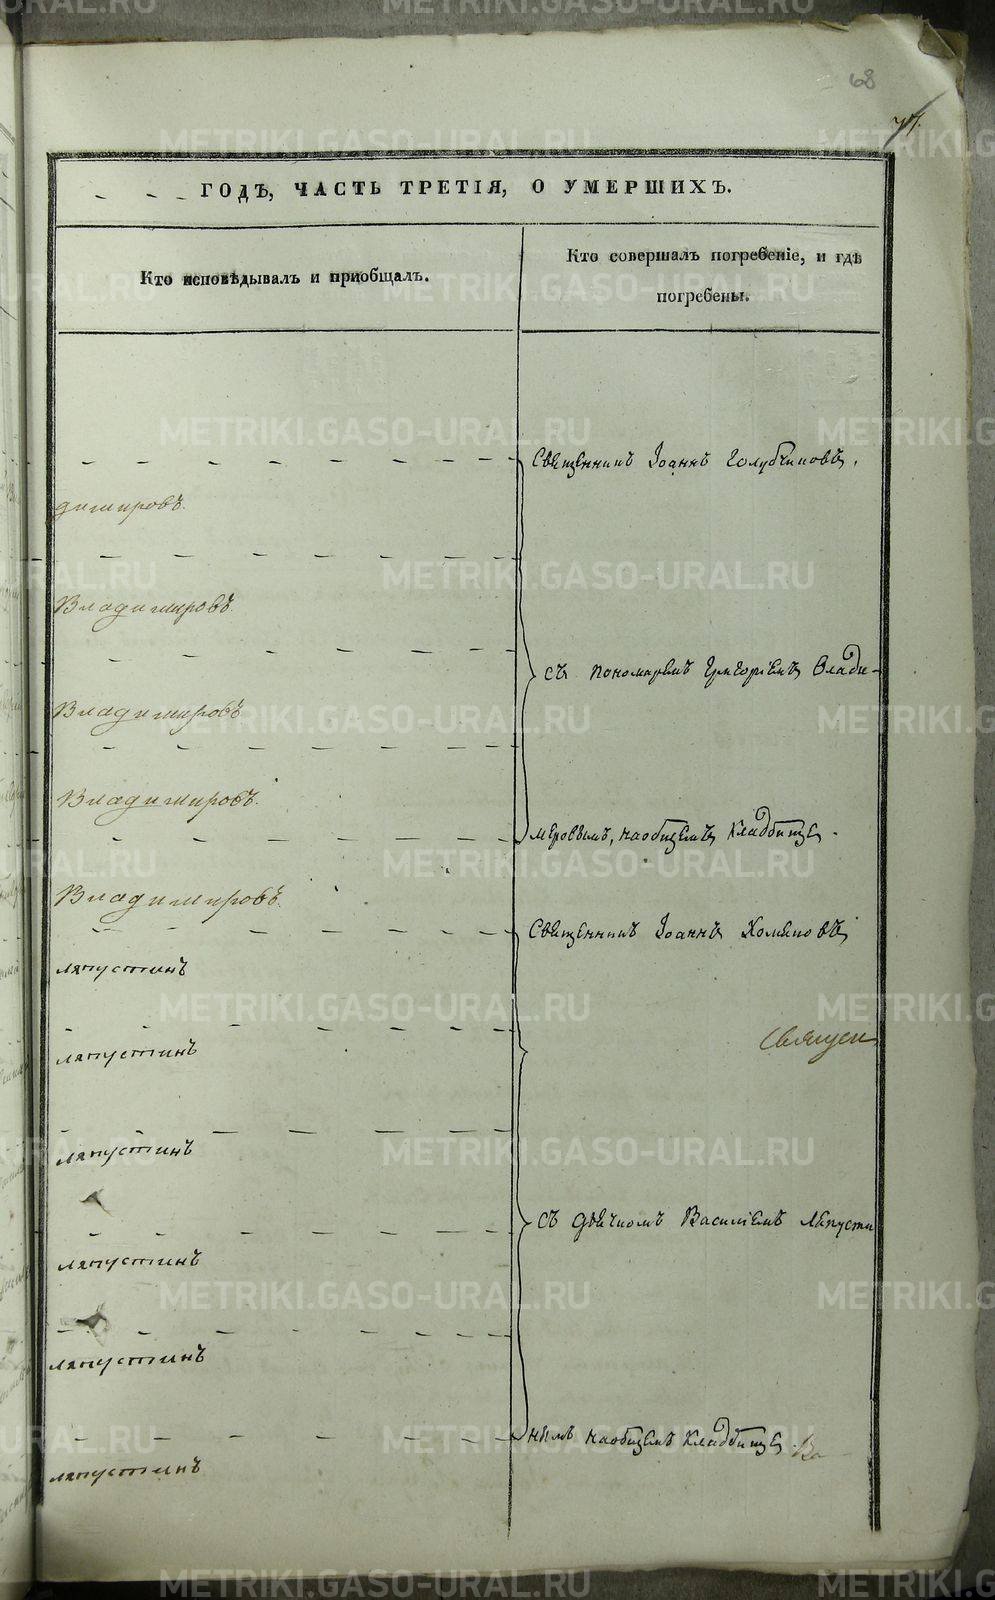 68
77.
ГОДЪ, ЧАСТЬ ТРЕТІЯ, О УМЕРШИХЪ.
Кто исповѣдывалъ и пріобщалъ.
Кто совершалъ погребеніе, и гдѣ
погребены.
Священникъ Іоаннъ Голубчиковъ,
димировъ.
Владимировъ.
съ пономаремъ Григоріемъ Влади-
Владимировъ
Владимировъ.
меровымъ, наобщемъ кладбище.
Владимировъ.
Священникъ Іоаннъ Хомяковъ
ляпустинъ
ляпустинъ
ляпустинъ
съ дьячкомъ Василіемъ Ляпусти
ляпустинъ
ляпустинъ
нымъ наобщемъ кладбище.
ляпустинъ
METRIKI.GASO-URAL.RU